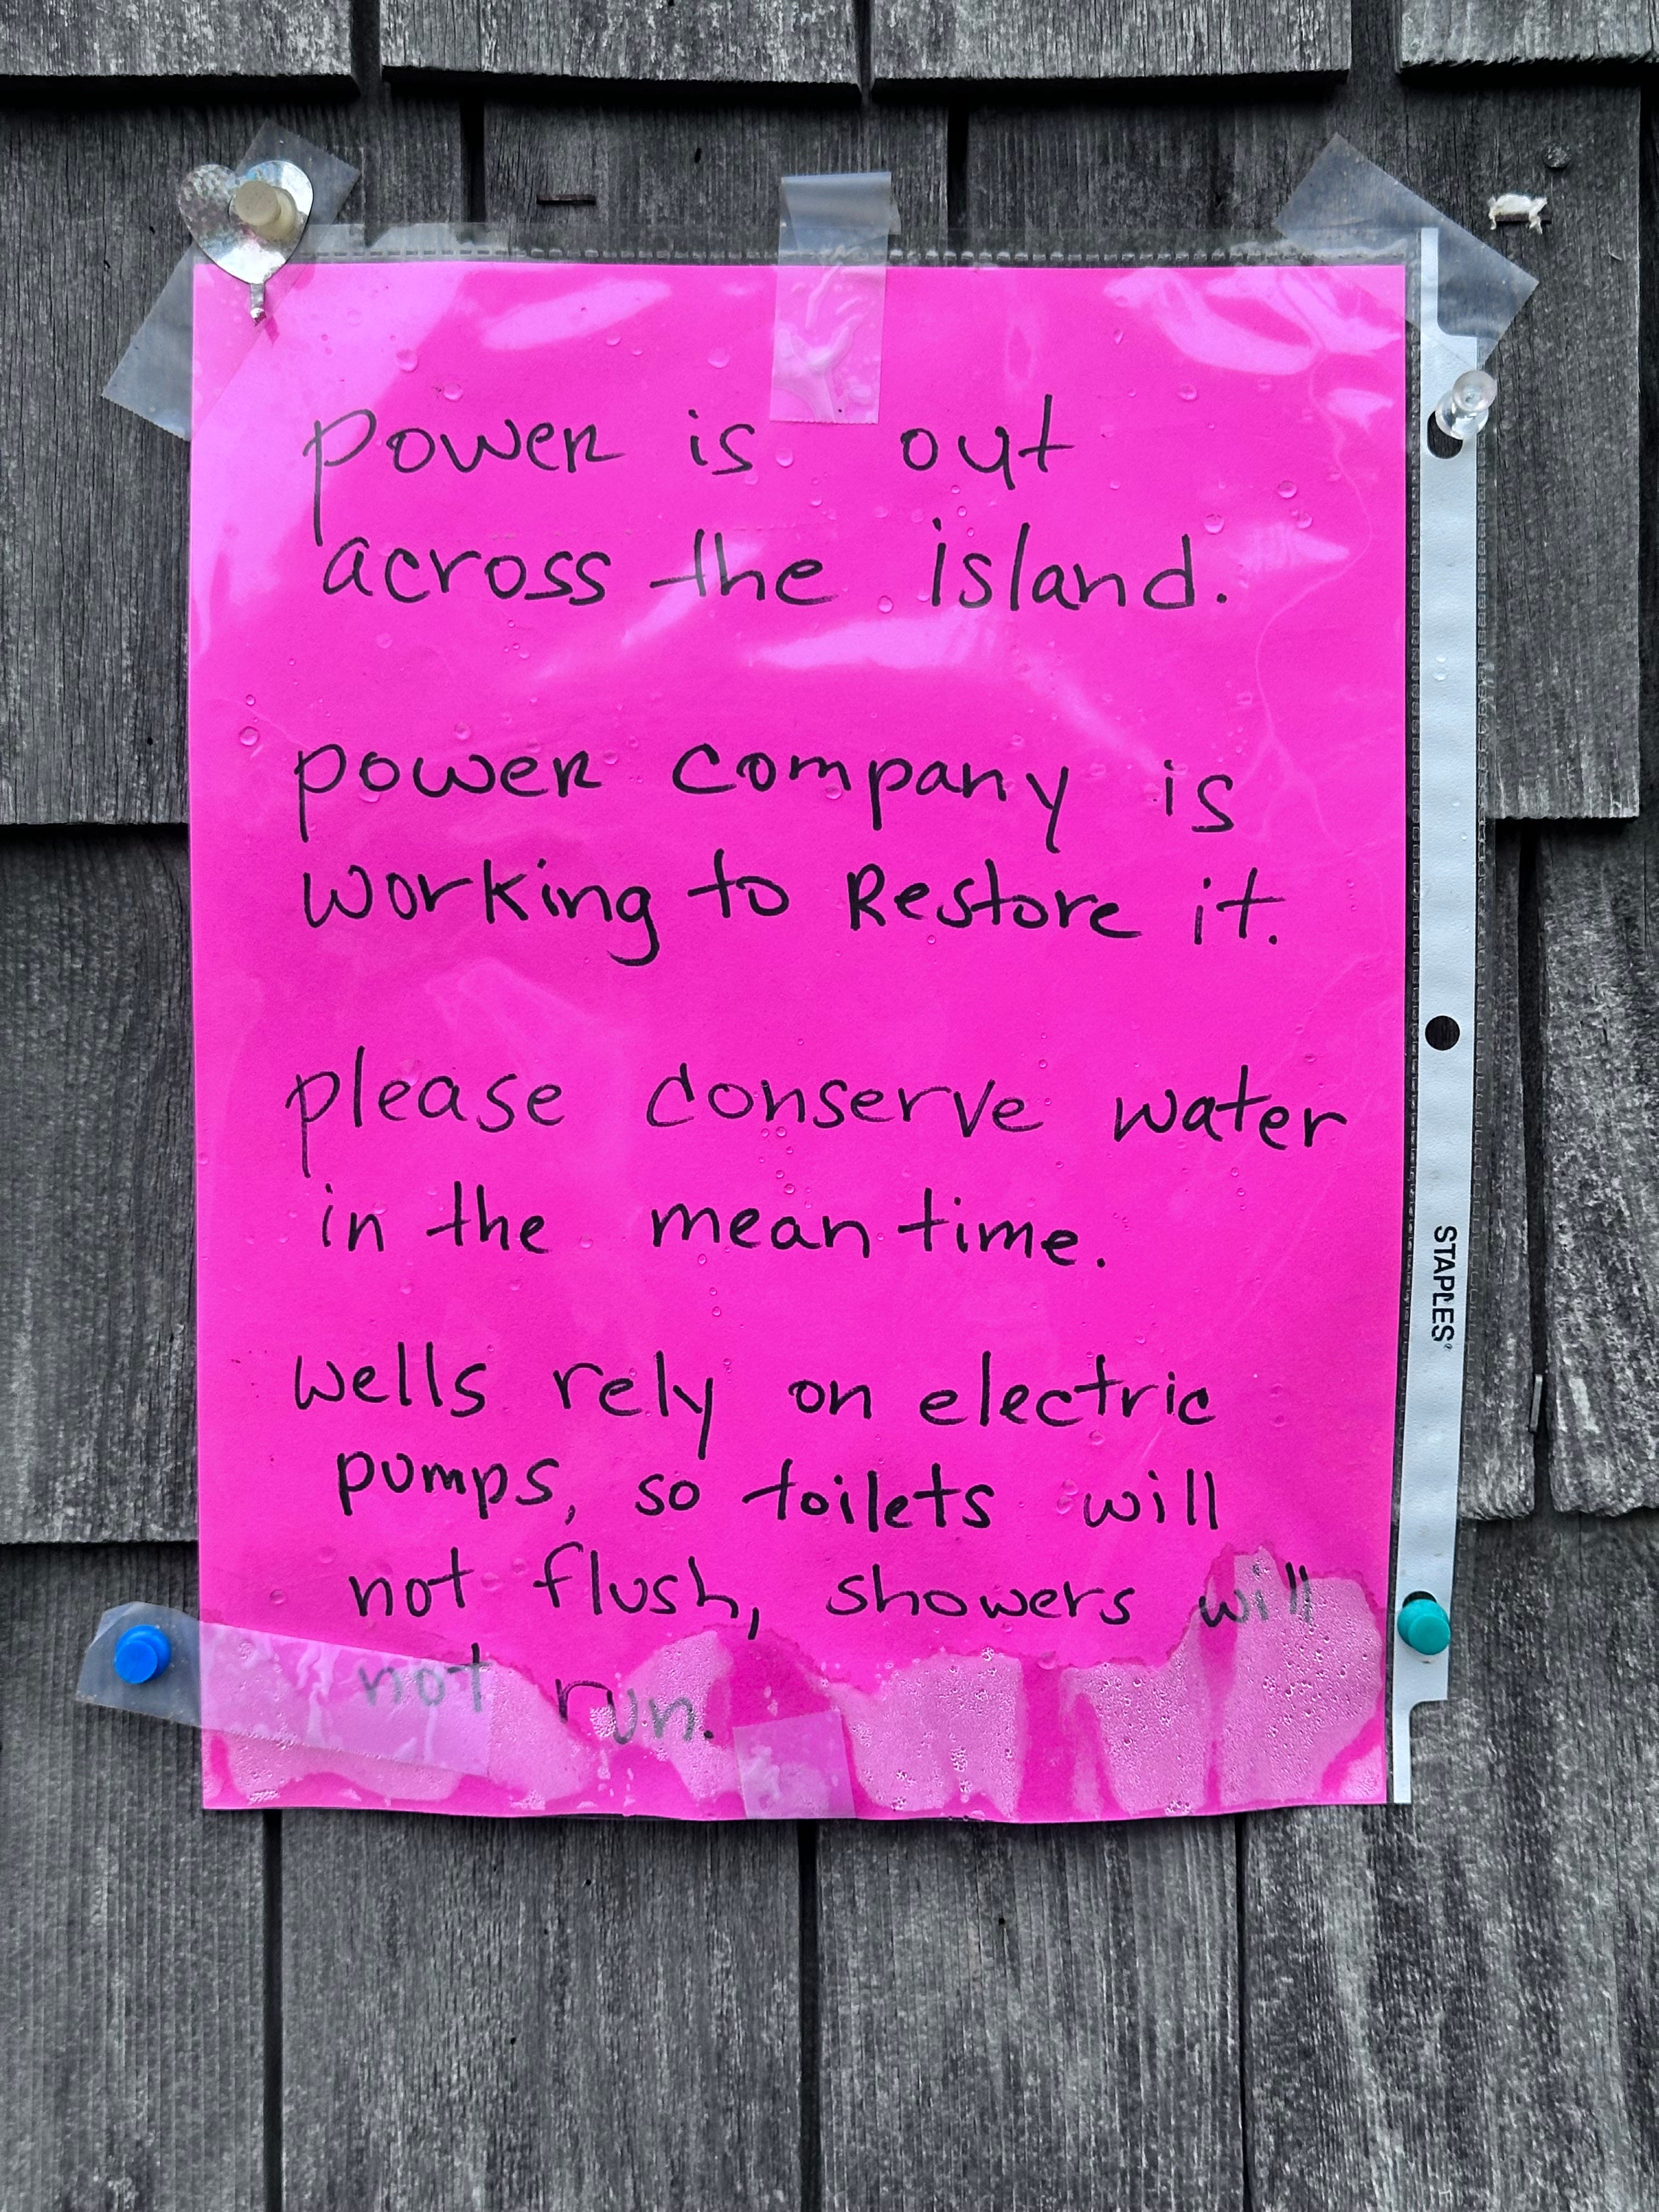 power is out
across the island.
power company is
working to Restore it.
please conserve water
in the mean time.
wells rely on electric
pumps, so toilets will
not flush, showers will
not run.
STAPLES